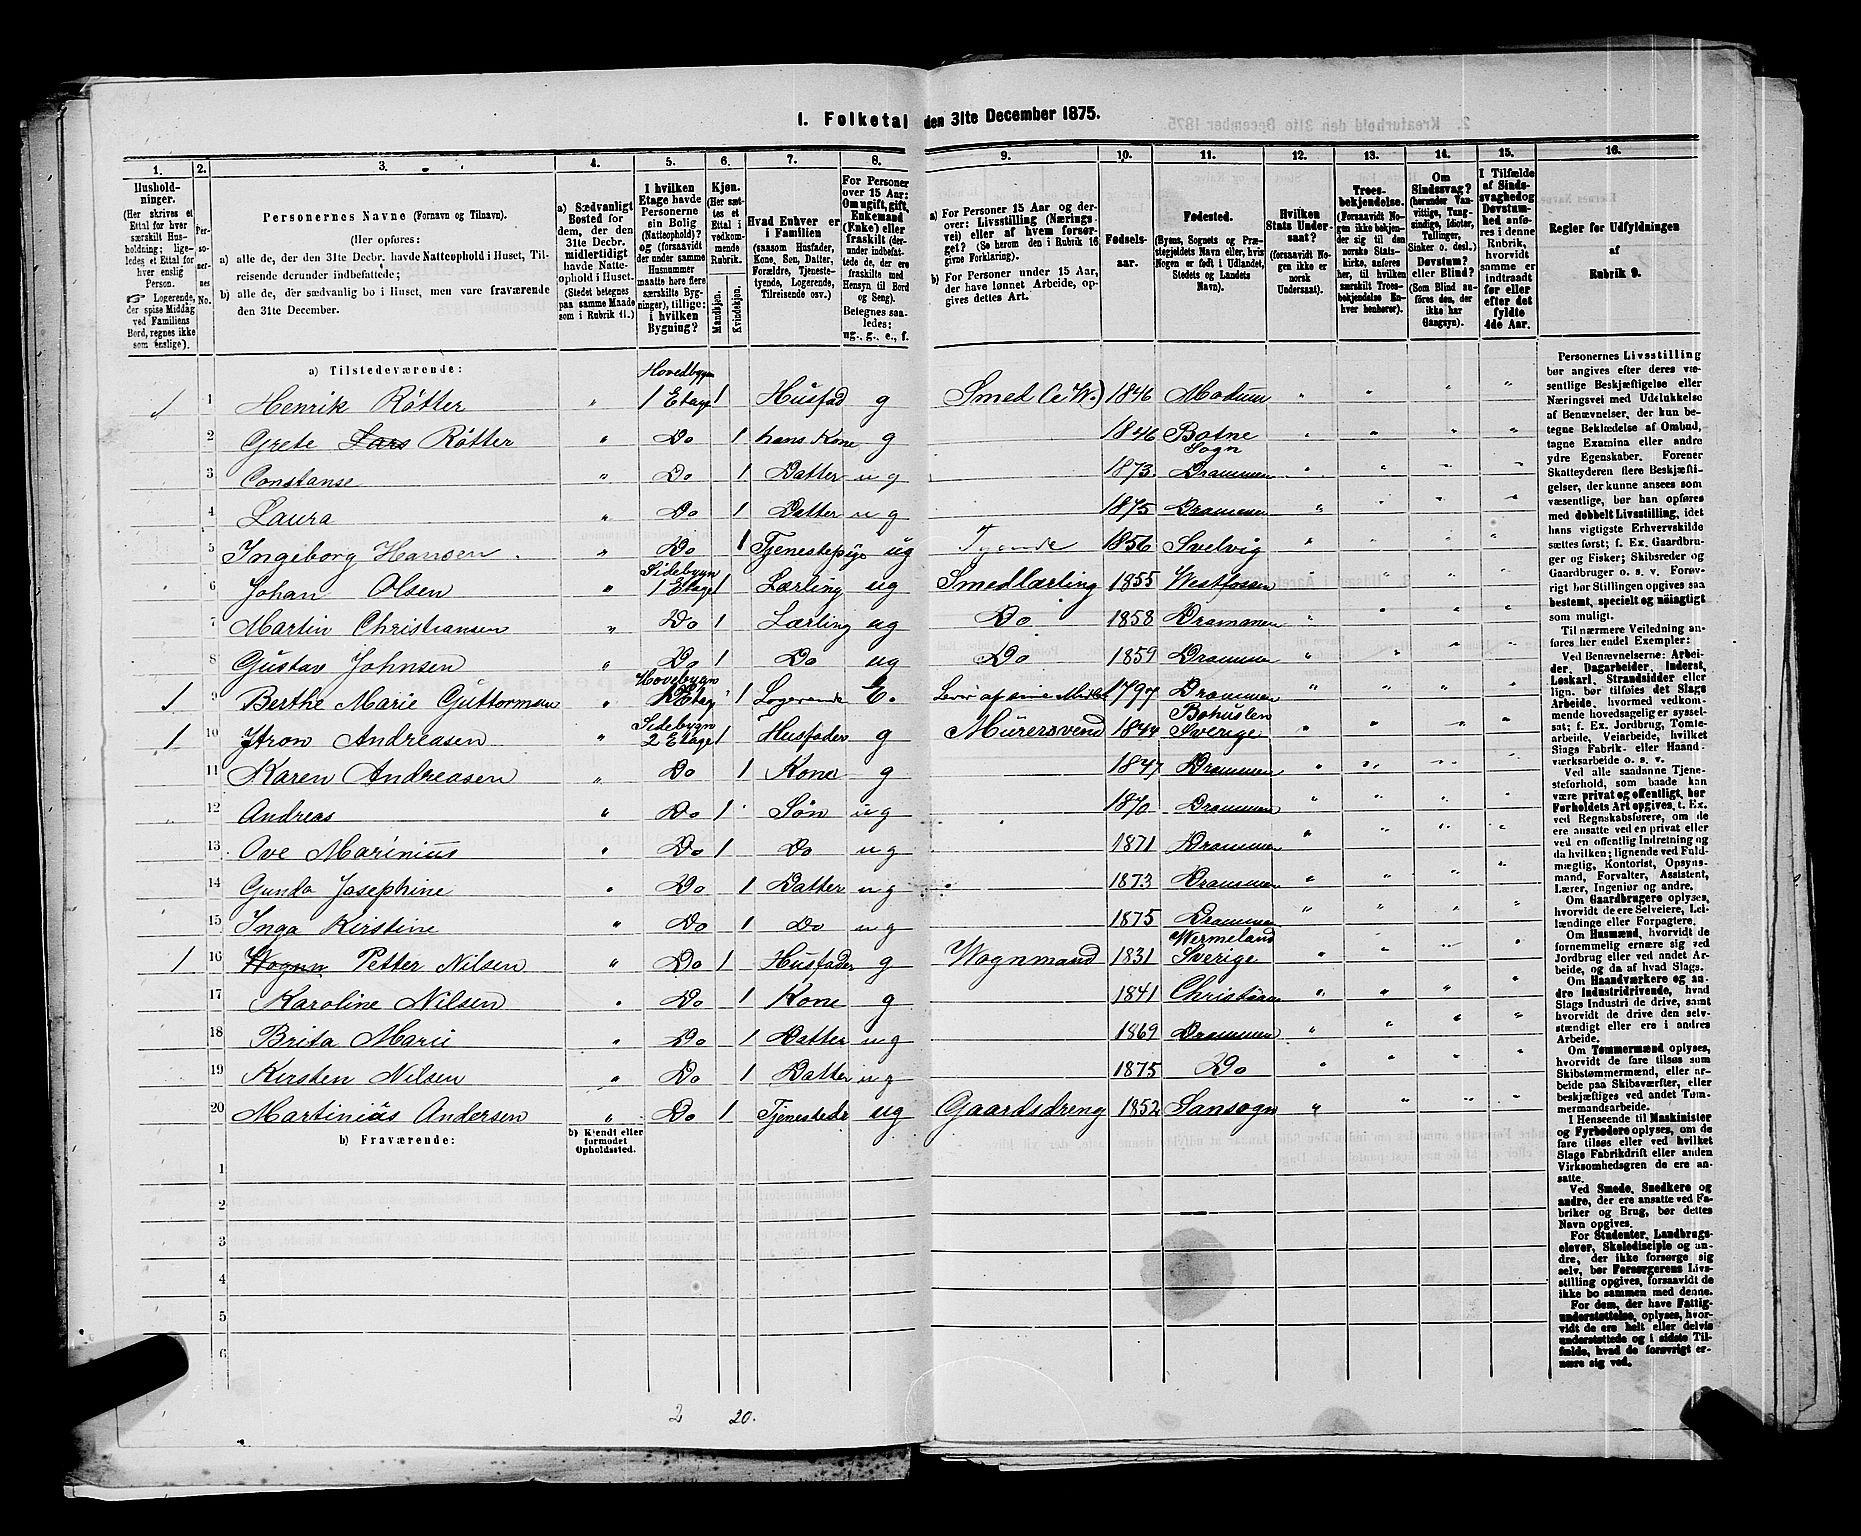 I. Folketal den 31te December 1875.
1. 2. 3. 4. 5. 6. 7. 8. 9. 10. 11. 12. 13. 14. 15. 16.
Husholdninger.
(Her skrives et
Ettal for hver
særskilt Husholdning;
ligeledes et Ettal for
hver enslig
Person.
☞ Logerende,
der spise Middag
ved Familiens
Bord, regnes ikke
som enslige).
Personernes No.
Personernes Navne (Fornavn og Tilnavn).
(Her opføres:
a) alle de, der den 31te Decbr. havde Natteophold i Huset, Tilreisende derunder indbefattede;
b) alle de, der sædvanlig bo i Huset, men vare fraværende
den 31te December.
a) Sædvanligt
Bosted for
dem, der den
31te Decbr.
midlertidigt
havde Natteophold
i Huset.
(Stedet betegnes
paa samme Maade
som i Rubrik 11.)
I hvilken
Etage havde
Personerne
sin Bolig
(Natteophold)?
og (forsaavidt
der under samme
Husnummer
maatte høre flere
særskilte Bygninger),
tillige:
i hvilken
Bygning?
Kjøn.
(Her sættes
et
Ettal i
vedkommende
Rubrik.
Mandkjøn.
Kvindekjøn.
Hvad Enhver er
i Familien
(saasom Husfader,
Kone, Søn, Datter,
Forældre, Tjenestetyende,
Logerende,
Tilreisende osv.)
For Personer
over 15 Aar:
Om ugift, gift,
Enkemand
(Enke) eller
fraskilt (derunder
indbefattede
de, der ere
fraskilte med
Hensyn til Bord
og Seng).
Betegnes saaledes:
ug., g., e., f.
a) For Personer 15 Aar og derover:
Livsstilling (Næringsvei)
eller af hvem forsørget?
(Se herom den i Rubrik 16
givne Forklaring).
b) For Personer under 15 Aar,
der have lønnet Arbeide, opgives
dettes Art.
Fødselsaar.
Fødested.
(Byens, Sognets og Præstegjeldets
Navn eller, hvis
Nogen er født i Udlandet,
Stedets og Landets
Navn).
Hvilken
Stats Undersaat?
(forsaavidt Nogen
ikke er
norsk
Undersaat).
Troesbekjendelse.
(Forsaavidt Nogen
ikke bekjender
sig til den
norske Statskirke,
anføres
her, til hvilken
særskilt Troesbekjendelse
Enhver
henhører).
Om
Sindssvag?
(herunder Vanvittige,
Tungsindige,
Idioter,
Tullinger,
Sinker o. desl.)
Døvstum?
eller Blind?
(Som Blind anføres
den, der
ikke har
Gangsyn).
I Tilfælde
af Sindssvaghed
og
Døvstumhed
anføres
i denne
Rubrik,
hvorvidt
samme er
indtraadt
før eller
efter det
fyldte
4de Aar.
Regler for Udfyldningen
af
Rubrik 9.
a) Tilstedeværende:
1 1 Henrik Røtter „ Hovedbygn 1 Etage 1 Husfad g Smed (e W.) 1846 Modum „ „ „ „
2 Grete Lars Røtter „ Do 1 hans Kone g 1846 Botne Sogn „ „ „ „
3 Constanse „ Do 1 Datter ug 1873 Drammen „ „ „ „
4 Laura „ Do 1 Datter ug 1875 Drammen „ „ „ „
5 Ingeborg Hansen „ Do 1 Tjenestepige ug Tyende 1856 Svelvig „ „ „ „
6 Johan Olsen „ Sidebygn 1 Etage 1 Lærling ug Smedlærling 1855 Westfossen „ „ „ „
7 Martin Christiansen „ Do 1 Lærling ug Do 1858 Drammen „ „ „ „
8 Gustav Johnsen „ Do 1 Do ug Do 1859 Drammen „ „ „ „
1 9 Berthe Marie Guttormsen „ Hovebygn Etage 1 Logerende E. Lever af sine Midler 1797 Drammen „ „ „ „
1 10 Aron Andreasen „ Sidebygn 2 Etage 1 Husfader g Murersvend 1844 Bohuslen Sverige „ „ „ „
11 Karen Andreasen „ Do 1 Kone g 1847 Drammen „ „ „ „
12 Andreas „ Do 1 Søn ug 1870 Drammen „ „ „ „
13 Ove Marinius „ Do 1 Do ug 1871 Drammen „ „ „ „
14 Gunda Josephine „ Do 1 Datter ug 1873 Drammen „ „ „ „
15 Inga Kirstine „ Do 1 Do ug 1875 Drammen „ „ „ „
1 16 Wognn Petter Nilsen „ Do 1 Husfader g Wognmand 1831 Wermeland Sverige „ „ „ „
17 Karoline Nilsen „ Do 1 Kone g 1841 „ „ „ „
18 Brita Marie „ Do 1 Datter ug 1869 Drammen „ „ „ „
19 Kirsten Nilsen „ Do 1 Datter ug 1875 Do „ „ „ „
20 Martinius Andersen „ Do 1 Tjenestedr ug Gaardsdreng 1852 Sansogn „ „ „ „
b) Fraværende:
b) Kjendt eller
formodet
Opholdssted.
1
2
3
4
5
6
2 20.
Personernes Livsstilling
bør angives efter deres væsentlige
Beskjæftigelse eller
Næringsvei med Udelukkelse
af Benævnelser, der kun betegne
Beklædelse af Ombud,
tagne Examina eller andre
ydre Egenskaber. Forener
Skatteyderen flere Beskjæftigelser,
der kunne ansees som
væsentlige, bør han opføres
med dobbelt Livsstilling, idet
hans vigtigste Erhvervskilde
sættes først; f. Ex. Gaardbruger
og Fisker; Skibsreder og
Gaardbruger o. s. v. Forøvrigt
bør Stillingen opgives saa
bestemt, specielt og nøiagtigt
som muligt.
Til nærmere Veiledning anføres
her endel Exempler:
Ved Benævnelserne: Arbeider,
Dagarbeider, Inderst,
Løskarl, Strandsidder eller
lign. bør tilføies det Slags
Arbeide, hvormed vedkommende
hovedsagelig er sysselsat;
f. Ex. Jordbrug, Tomtearbeide,
Veiarbeide, hvilket
Slags Fabrik- eller Haandværksarbeide
o. s. v.
Ved alle saadanne Tjenesteforhold,
som baade kan
være privat og offentligt, bør
Forholdets Art opgives, t. Ex.
ved Regnskabsførere, om de
ere ansatte ved en privat eller
ved en offentlig Indretning og
da hvilken; lignende ved Fuldmægtig,
Kontorist, Opsynsmand,
Forvalter, Assistent,
Lærer, Ingeniør og andre.
Om Gaardbrugere oplyses,
hvorvidt de ere Selveiere, Leilændinge
eller Forpagtere.
Om Husmænd, hvorvidt de
fornemmelig ernære sig ved
Jordbrug eller ved andet Arbeide,
og da af hvad Slags.
Om Haandværkere og andre
Industridrivende, hvad
Slags Industri de drive, samt
hvorvidt de drive den selvstændigt
eller ere i andres
Arbeide.
Om Tømmermænd oplyses,
hvorvidt de fare tilsøs som
Skibstømmermænd, eller arbeide
paa Skibsværfter, eller
beskjæftiges ved andet Tømmermandsarbeide.
I Henseende til Maskinister
og Fyrbødere oplyses, om de
fare tilsøs eller ved hvilket
Slags Fabrikdrift eller anden
Virksomhedsgren de ere ansatte.
Ved Smede, Snedkere og
andre, der ere ansatte ved Fabriker
og Brug, bør dettes
Navn opgives.
For Studenter, Landbrugselever,
Skoledisciple og andre,
der ikke forsørge sig
selv, bør Forsørgerens Livsstilling
opgives, forsaavidt de
ikke bo sammen med denne.
For dem, der have Fattigunderstøttelse,
oplyses, hvorvidt
de ere helt eller delvis
understøttede og i sidste Tilfælde,
hvad de forøvrigt ernære
sig ved.